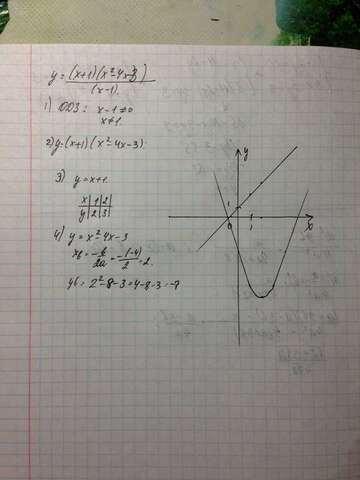 y = (x+1)(x²-4x-3)
(x-1).
1) ОДЗ: x-1≠0
x≠1.
2) y=(x+1)(x²-4x-3)
3) y=x+1.
x | 1 | 2 |
y | 2 | 3 |
4) y=x²-4x-3
xв = -b/2a = -(-4)/2 = 2.
yв = 2²-8-3=4-8-3=-7
y
1
0 1 x